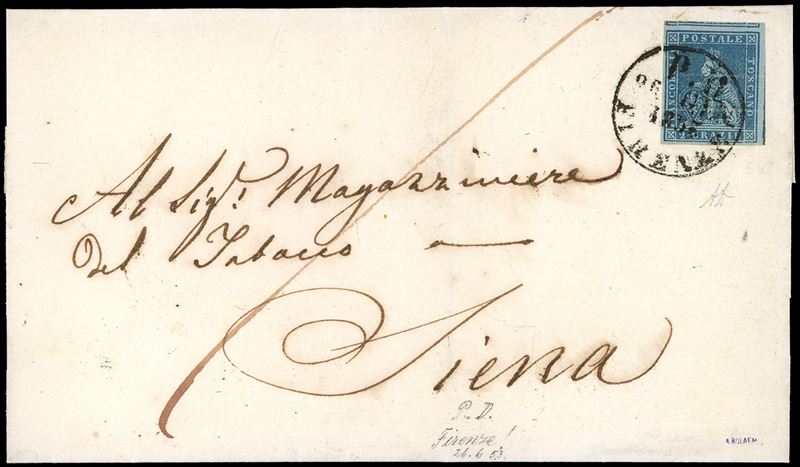 POSTALE
TOSCANO
P. D.
FIRENZE
Al Sigr. Magazziniere
del Tabacco
Siena
P. D.
Firenze!
26.6 53.